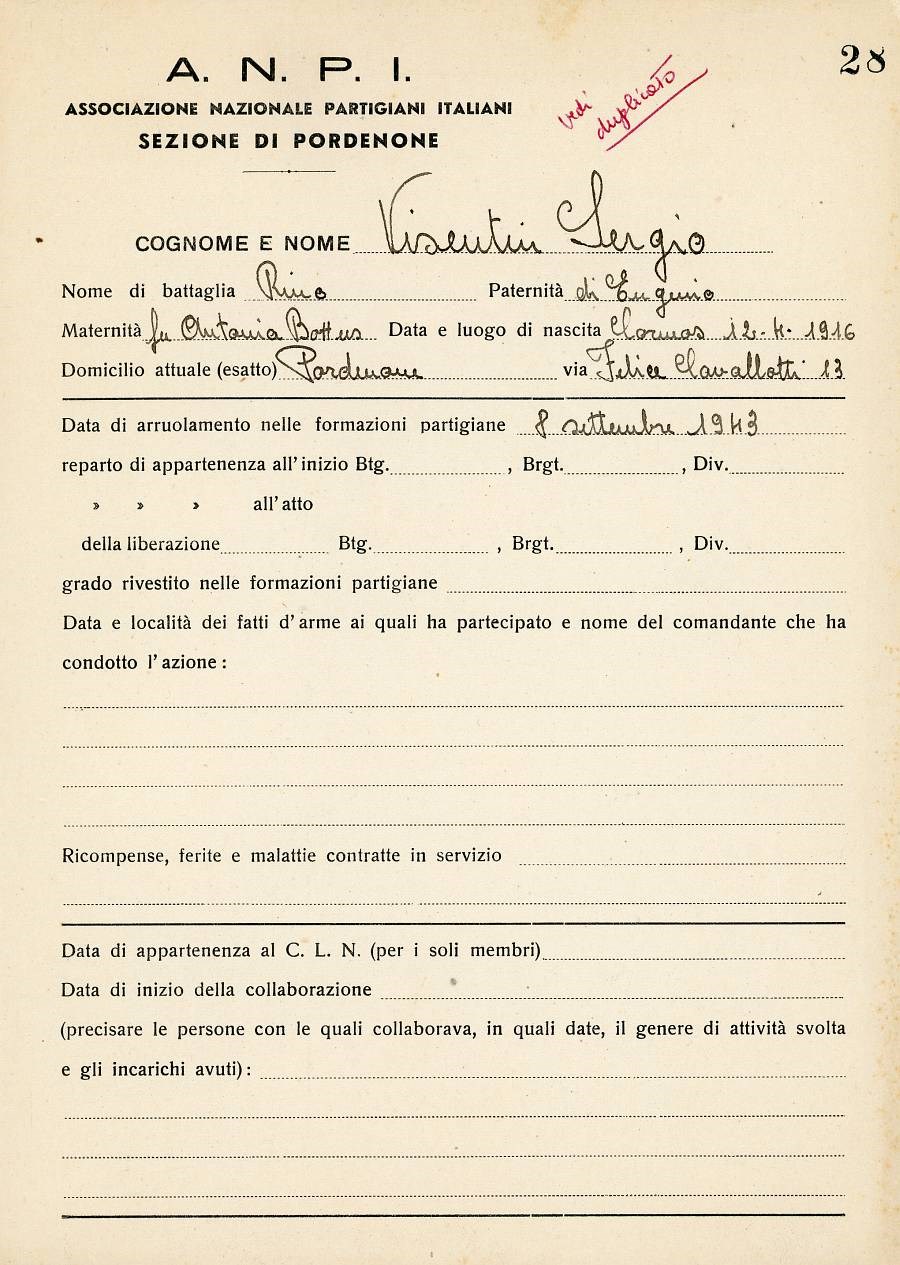 28
A. N. P. I.
ASSOCIAZIONE NAZIONALE PARTIGIANI ITALIANI
SEZIONE DI PORDENONE
vedi
duplicato
COGNOME E NOME Visentin Sergio
Nome di battaglia Rino Paternità di Eugenio
Maternità fu Antonia Data e luogo di nascita Cormos 12-4-1916
Domicilio attuale (esatto) Pordenone via Felice Cavallotti 13
Data di arruolamento nelle formazioni partigiane 8 settembre 1943
reparto di appartenenza all'inizio Btg. , Brgt. , Div.
» » » all'atto
della liberazione Btg. , Brgt. , Div.
grado rivestito nelle formazioni partigiane
Data e località dei fatti d'arme ai quali ha partecipato e nome del comandante che ha
condotto l'azione :
Ricompense, ferite e malattie contratte in servizio
Data di appartenenza al C. L. N. (per i soli membri)
Data di inizio della collaborazione
(precisare le persone con le quali collaborava, in quali date, il genere di attività svolta
e gli incarichi avuti) :